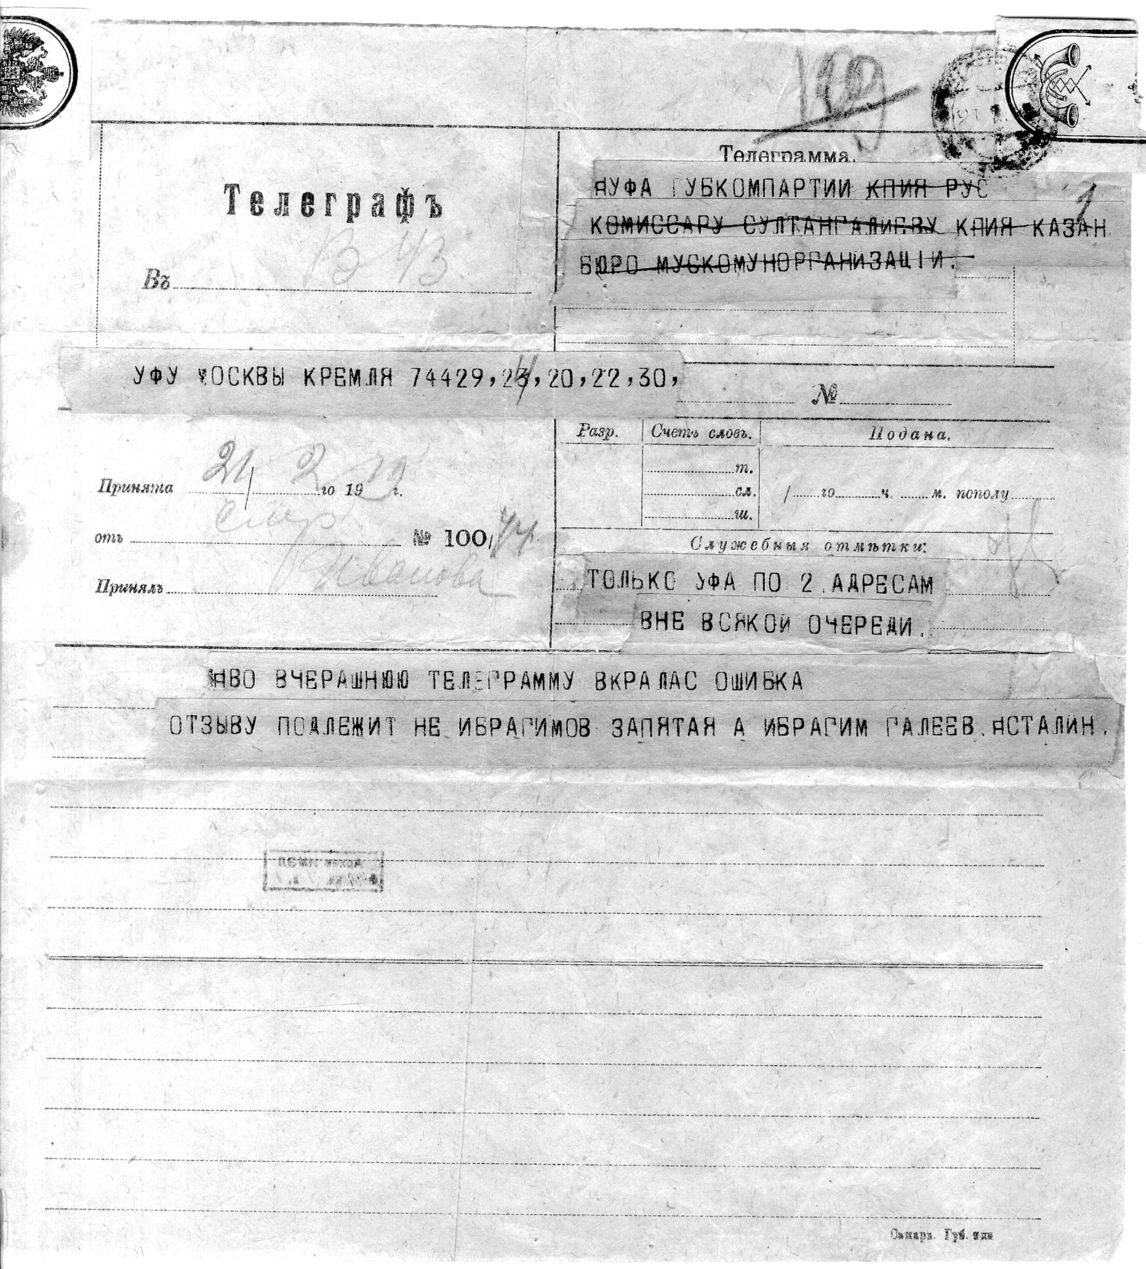 129
Телеграфъ
В 43
Въ
Телеграмма.
ЯУФА ГУБКОМПАРТИИ КПИЯ РУС
1
КОМИССАРУ СУЛТАНГАЛИЕВУ КПИЯ КАЗАН
БЮРО МУСКОМУНОРГАНИЗАЦІИ.
УФУ МОСКВЫ КРЕМЛЯ 74429,23,20,22,30,
№
Разр. Счетъ словъ. Подана.
т.
сл.
ш.
го ч. м. пополу
Принята 21/2 го 1919 г.
отъ № 100/
Принялъ Иванова
Служебныя отмѣтки:
ТОЛЬКО УФА ПО 2 АДРЕСАМ
ВНЕ ВСЯКОЙ ОЧЕРЕДИ.
ЯВО ВЧЕРАШНЮЮ ТЕЛЕГРАММУ ВКРАЛАС ОШИБКА
ОТЗЫВУ ПОДЛЕЖИТ НЕ ИБРАГИМОВ ЗАПЯТАЯ А ИБРАГИМ ГАЛЕЕВ ЯСТАЛИН.
Самара. Губ. тип